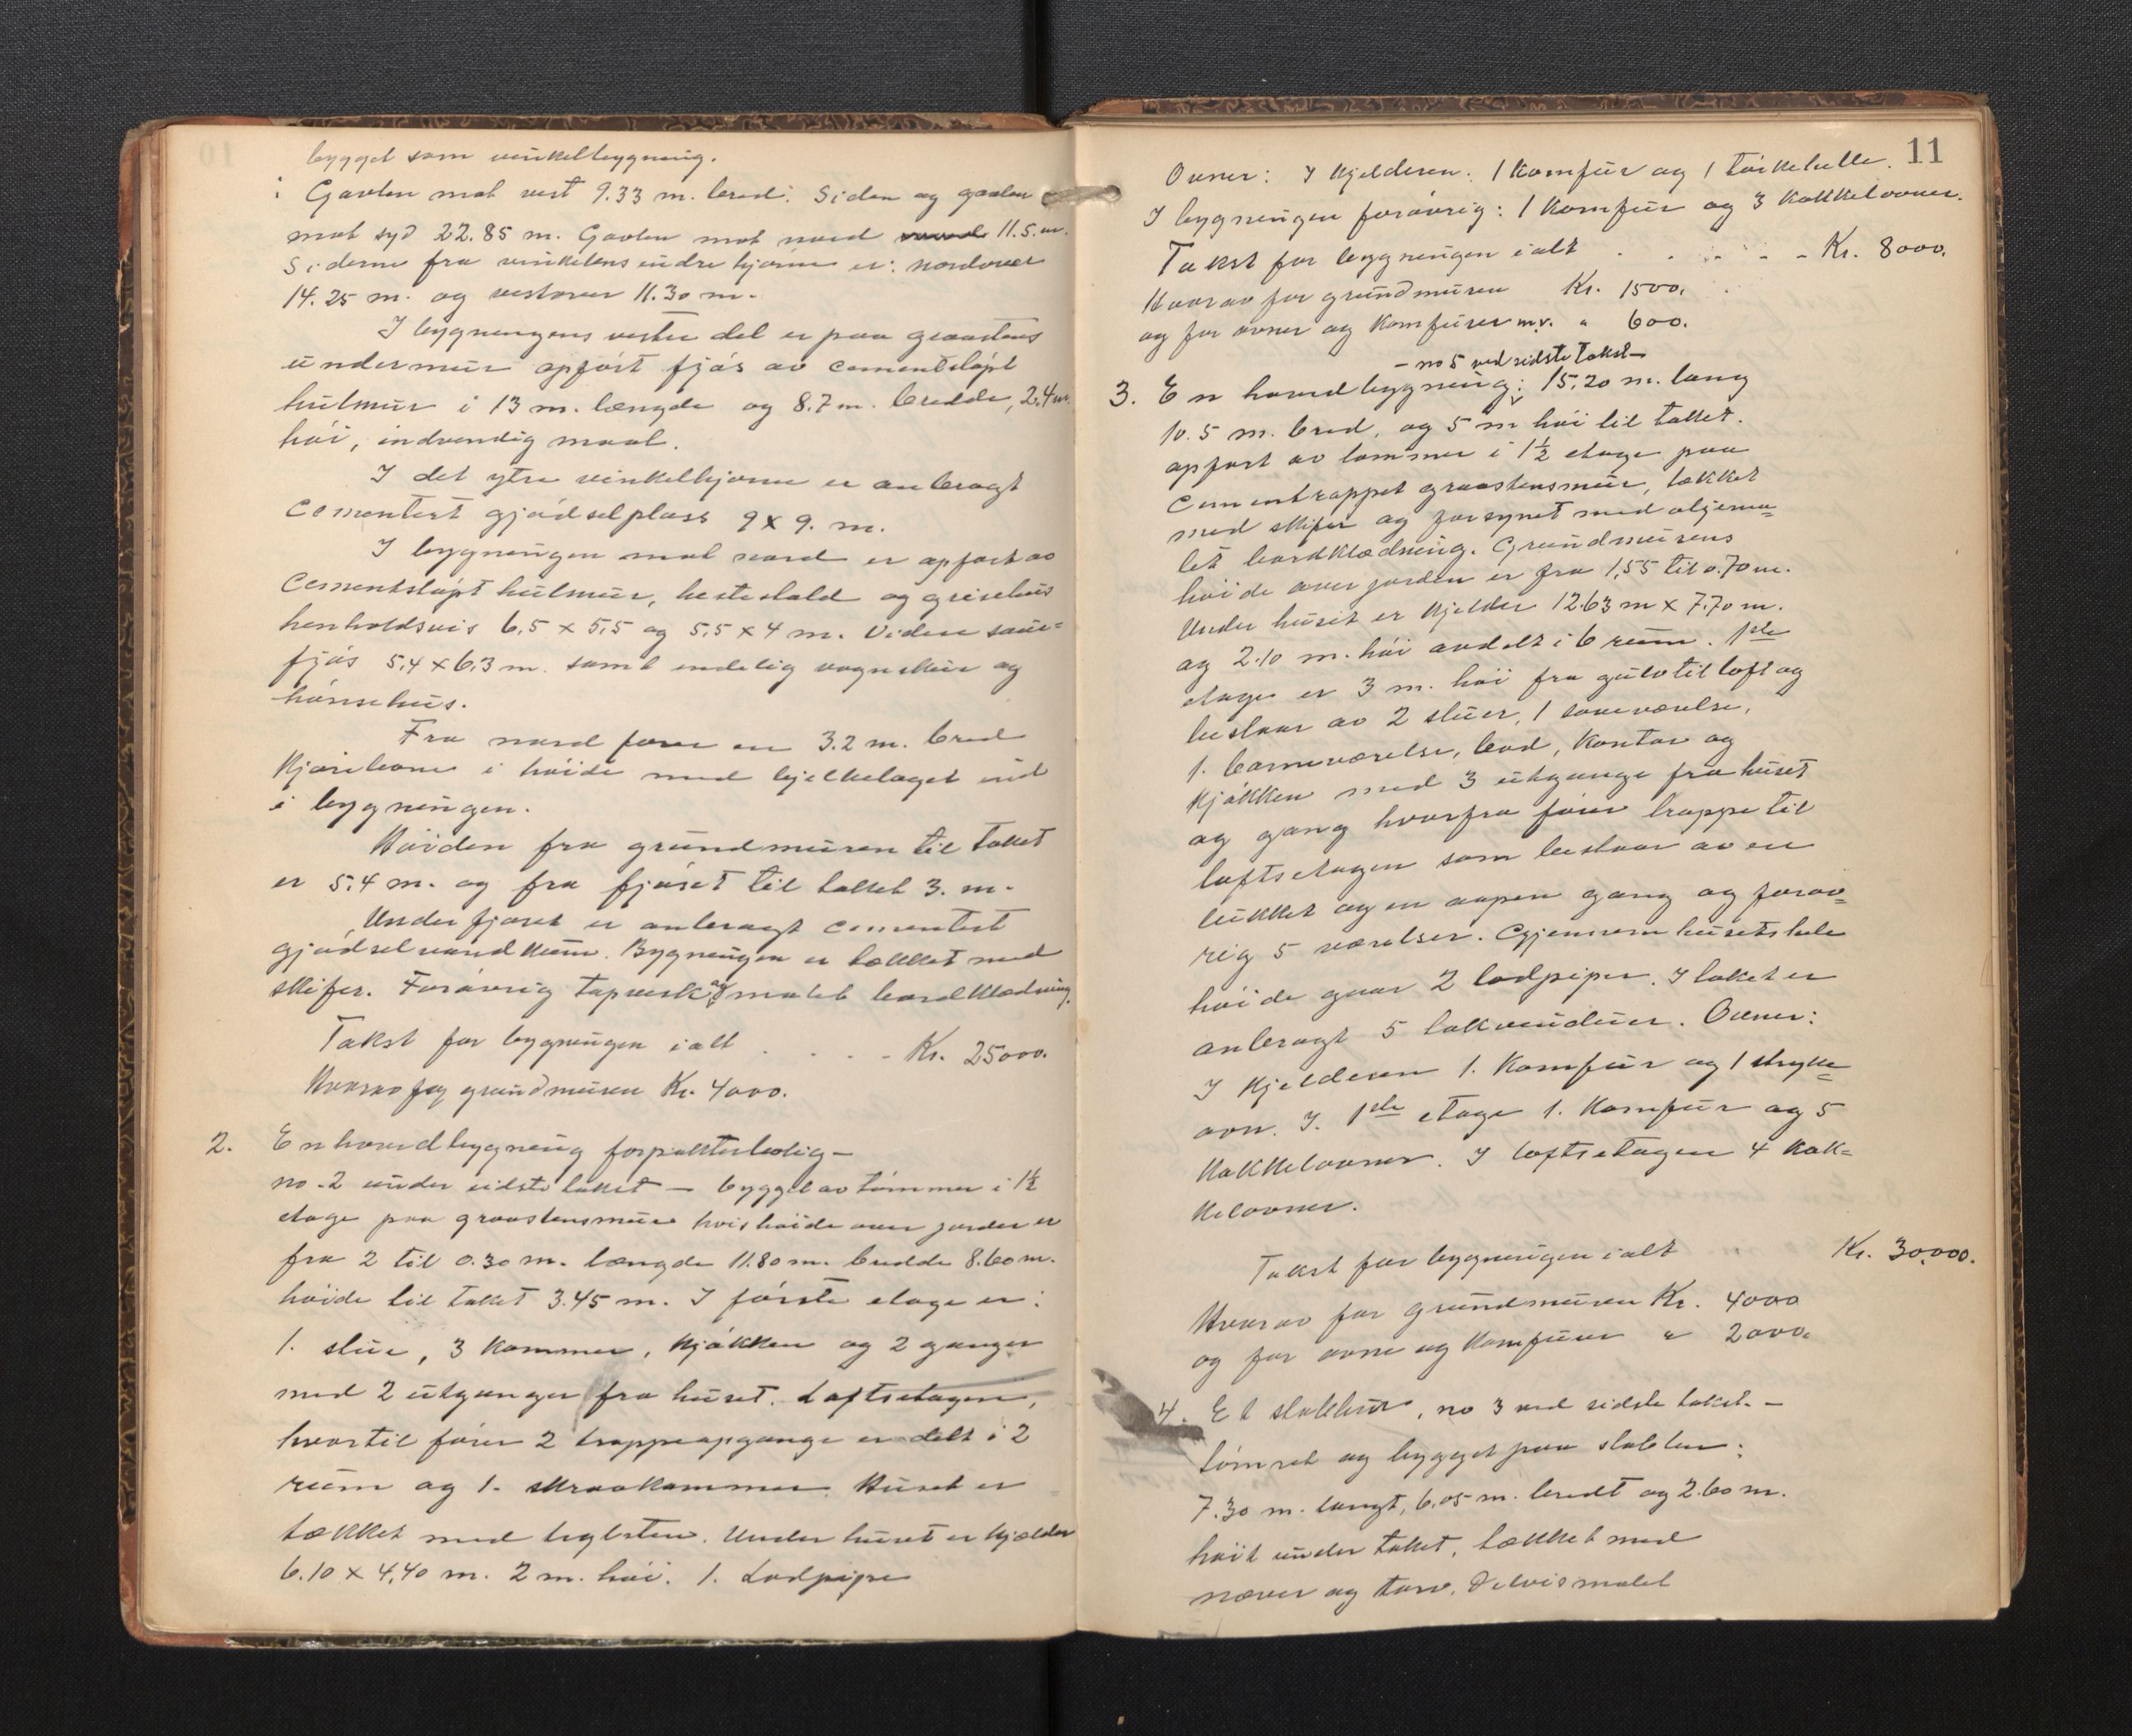 bygget som vinkelbygning.
Gavlen mot vest 9.33 m. bred: Siden og gavlen
mot syd 22.85 m. Gavlen mot nord 11.5. m.
Siderne fra vinkelens indre hjørne er: nordover
14.25 m. og vestover 11.30 m.
I bygningens vestre del er paa graastens
undermur opført fjøs av cementstøpt
hulmur i 13 m. længde og 8.7 m. bredde, 2.4 m.
høi, indvendig maal.
I det ytre vinkelhjørne er anbragt
Cementert gjødselplass 9 x 9. m.
I bygningen mot nord er opført av
Cementstøpt hulmur, hestestald og grisehus
henholdsvis 6,5 x 5,5 og 5,5 x 4 m. Videre saue=
fjøs 5.4 x 6.3 m. samt endelig vognskur og
hønsehus.
Fra nord fører en 3.2 m. bred
Kjørebro i høide med bjelkelaget ind
i bygningen.
Høiden fra grundmuren til taket
er 5.4 m. og fra fjøset til taket 3. m.
Under fjøset er anbragt cementert
gjødselvandkum. Bygningen er tækket med
skifer. Forøvrig tapverk og malet bordklædning.
Takst for bygningen ialt . . . . Kr. 25000.
Hvorav for grundmuren Kr. 4000.
2. En hovedbygning forpakterbolig -
no. 2 under sidste takst - bygget av tømmer i 1½
etage paa graastensmur hvis høide over jorden er
fra 2 til 0.30 m. længde 11.80 m. bredde 8.60 m.
høide til taket 3.45 m. I første etage er:
1. stue, 3 kammer, kjøkken og 2 ganger
med 2 utganger fra huset. Loftsetagen,
hvortil fører 2 trappeopgange er delt i 2
rum og 1. skraakammer. Huset er
tækket med teglsten. Under huset er kjælder
6.10 x 4.40 m. 2 m. høi. 1. Lodpipe
11
Ovner: I kjelderen: 1 komfur og 1 tørkehelle.
I bygningen forøvrig: 1 komfur og 3 kakkelovner.
Takst for bygningen ialt . . . . . Kr. 8000.
Hvorav for grundmuren Kr. 1500.
og for ovner og komfurer m.v. " 600.
- no 5 ved sidste takst -
3. En hovedbygning; 15.20 m. lang
10.5 m. bred, og 5 m høi til taket.
opført av tømmer i 1½ etage paa
Cementrappet graastensmur, tækket
med skifer og forsynet med oljema=
let bordklædning. Grundmurens
høide over jorden er fra 1,55 til 0.70 m.
Under huset er kjelder 12.63 m x 7.70 m.
og 2.10 m. høi avdelt i 6 rum. 1ste
etage er 3 m. høi fra gulv til loft og
bestaar av 2 stuer, 1 soveværelse,
1. barneværelse, bad, kontor og
kjøkken med 3 utgange fra huset
og gang hvorfra fører trappe til
loftsetagen som bestaar av en
lukket og en aapen gang og forøv=
rig 5 værelser. Gjennem husets hele
høide gaar 2 lodpiper. I taket er
anbragt 5 takvinduer. Ovner:
I kjelderen 1. komfur og 1 stryke=
ovn. I. 1ste etage 1. komfur og 5
kakkelovner. I loftsetagen 4 kak=
kelovner.
Takst for bygningen ialt Kr. 30,000.
Hvorav for grundmuren Kr. 4000
og for ovne og komfurer " 2000.
4. Et stabbur, no 3 ved sidste takst. -
tømret og bygget paa stabber:
7.30 m. langt, 6.05 m. bredt og 2.60 m.
høit under taket, tækket med
næver og torv. Delvis malet